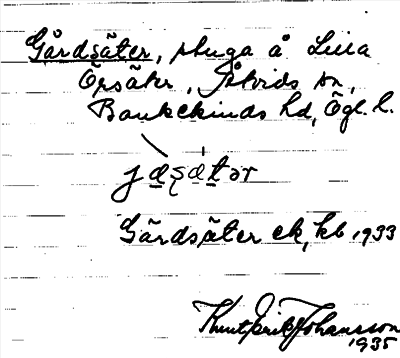 Gårdsäter, stuga å Lilla
Örsätr, Åtvids sn,
Bankekinds hd, Ögl. l.
jæṣætər
Gärdsäter ek, kb 1933
Knut Erik Johansson
1935